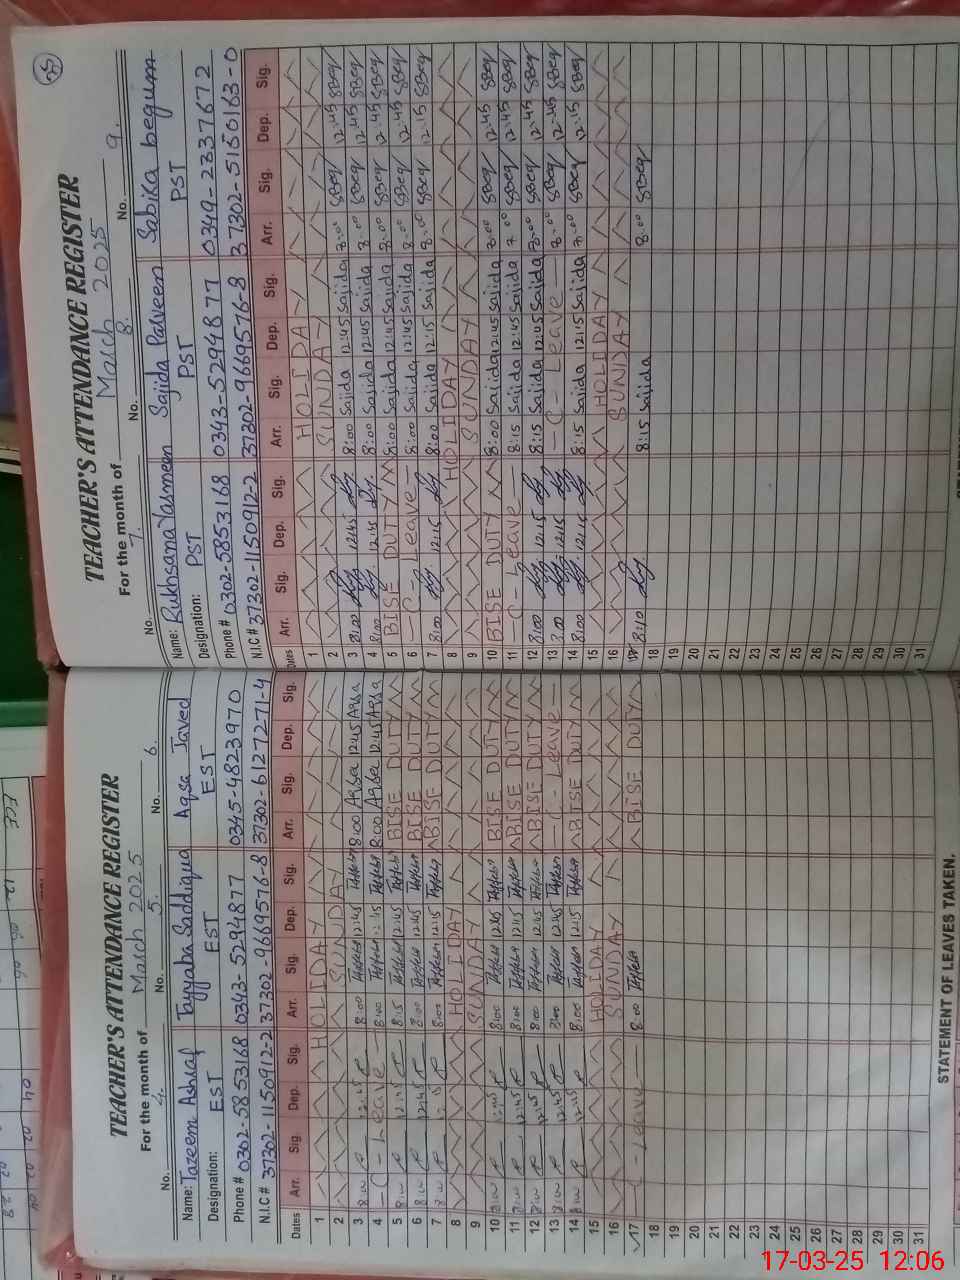 TEACHER'S ATTENDANCE REGISTER
For the month of March 2025
No. 4. No. 5. No. 6.
Name: Tazeem Ashraf Tayyaba Saddiqua Aqsa Javed
Designation: EST EST EST
Phone # 0302-5853168 0343-5294877 0345-4823970
N.I.C # 37302-1150912-2 37302-9669576-8 37302-6127271-4
Dates Arr. Sig. Dep. Sig. Arr. Sig. Dep. Sig. Arr. Sig. Dep. Sig.
1 HOLIDAY
2 SUNDAY
3 8:00 12:45 8:00 12:45 8:00 Aqsa 12:45 Aqsa
4 - C - Leave - 8:00 8:00 Aqsa 12:45 Aqsa
5 8:00 12:45 8:15 12:45 BISE DUTY
6 8:00 12:45 8:00 12:45 BISE DUTY
7 8:00 8:00 12:15 BISE DUTY
8 HOLIDAY
9 SUNDAY
10 8:00 12:45 8:00 12:45 BISE DUTY
11 8:00 12:45 8:00 12:45 BISE DUTY
12 8:00 12:45 8:00 12:45 BISE DUTY
13 8:00 12:45 8:00 12:45 - C - Leave
14 8:00 12:15 8:00 12:15 BISE DUTY
15 HOLIDAY
16 SUNDAY
17 C - Leave - 8:00 BISE DUTY
18
19
20
21
22
23
24
25
26
27
28
29
30
31
STATEMENT OF LEAVES TAKEN.
35
TEACHER'S ATTENDANCE REGISTER
For the month of March 2025
No. 7. No. 8. No. 9.
Name: Rukhsana Yasmeen Sajida Parveen Sabika begum
Designation: PST PST PST
Phone # 0302-5853168 0343-5294877 0349-2337672
N.I.C # 37302-1150912-2 37302-9669576-8 37302-5150163-0
Dates Arr. Sig. Dep. Sig. Arr. Sig. Dep. Sig. Arr. Sig. Dep. Sig.
1 HOLIDAY
2 SUNDAY
3 8:00 12:45 8:00 Sajida 12:45 Sajida 8:00 SBeg 12:45 SBeg
4 8:00 12:45 8:00 Sajida 12:45 Sajida 8:00 SBeg 12:45 SBeg
5 BISE DUTY 8:00 Sajida 12:45 Sajida 8:00 SBeg 12:45 SBeg
6 - C - Leave - 8:00 Sajida 12:45 Sajida 8:00 SBeg 12:45 SBeg
7 8:00 12:15 8:00 Sajida 12:15 Sajida 8:00 SBeg 12:15 SBeg
8 HOLIDAY
9 SUNDAY
10 BISE DUTY 8:00 Sajida 12:45 Sajida 8:00 SBeg 12:45 SBeg
11 - C - Leave - 8:15 Sajida 12:45 Sajida 8:00 SBeg 12:45 SBeg
12 8:00 12:15 8:15 Sajida 12:45 Sajida 8:00 SBeg 12:45 SBeg
13 8:00 12:15 - C - Leave - 8:00 SBeg 12:45 SBeg
14 8:00 12:15 8:15 Sajida 12:15 Sajida 8:00 SBeg 12:15 SBeg
15 HOLIDAY
16 SUNDAY
17 8:10 8:15 Sajida 8:00 SBeg
18
19
20
21
22
23
24
25
26
27
28
29
30
31
17-03-25 12:06